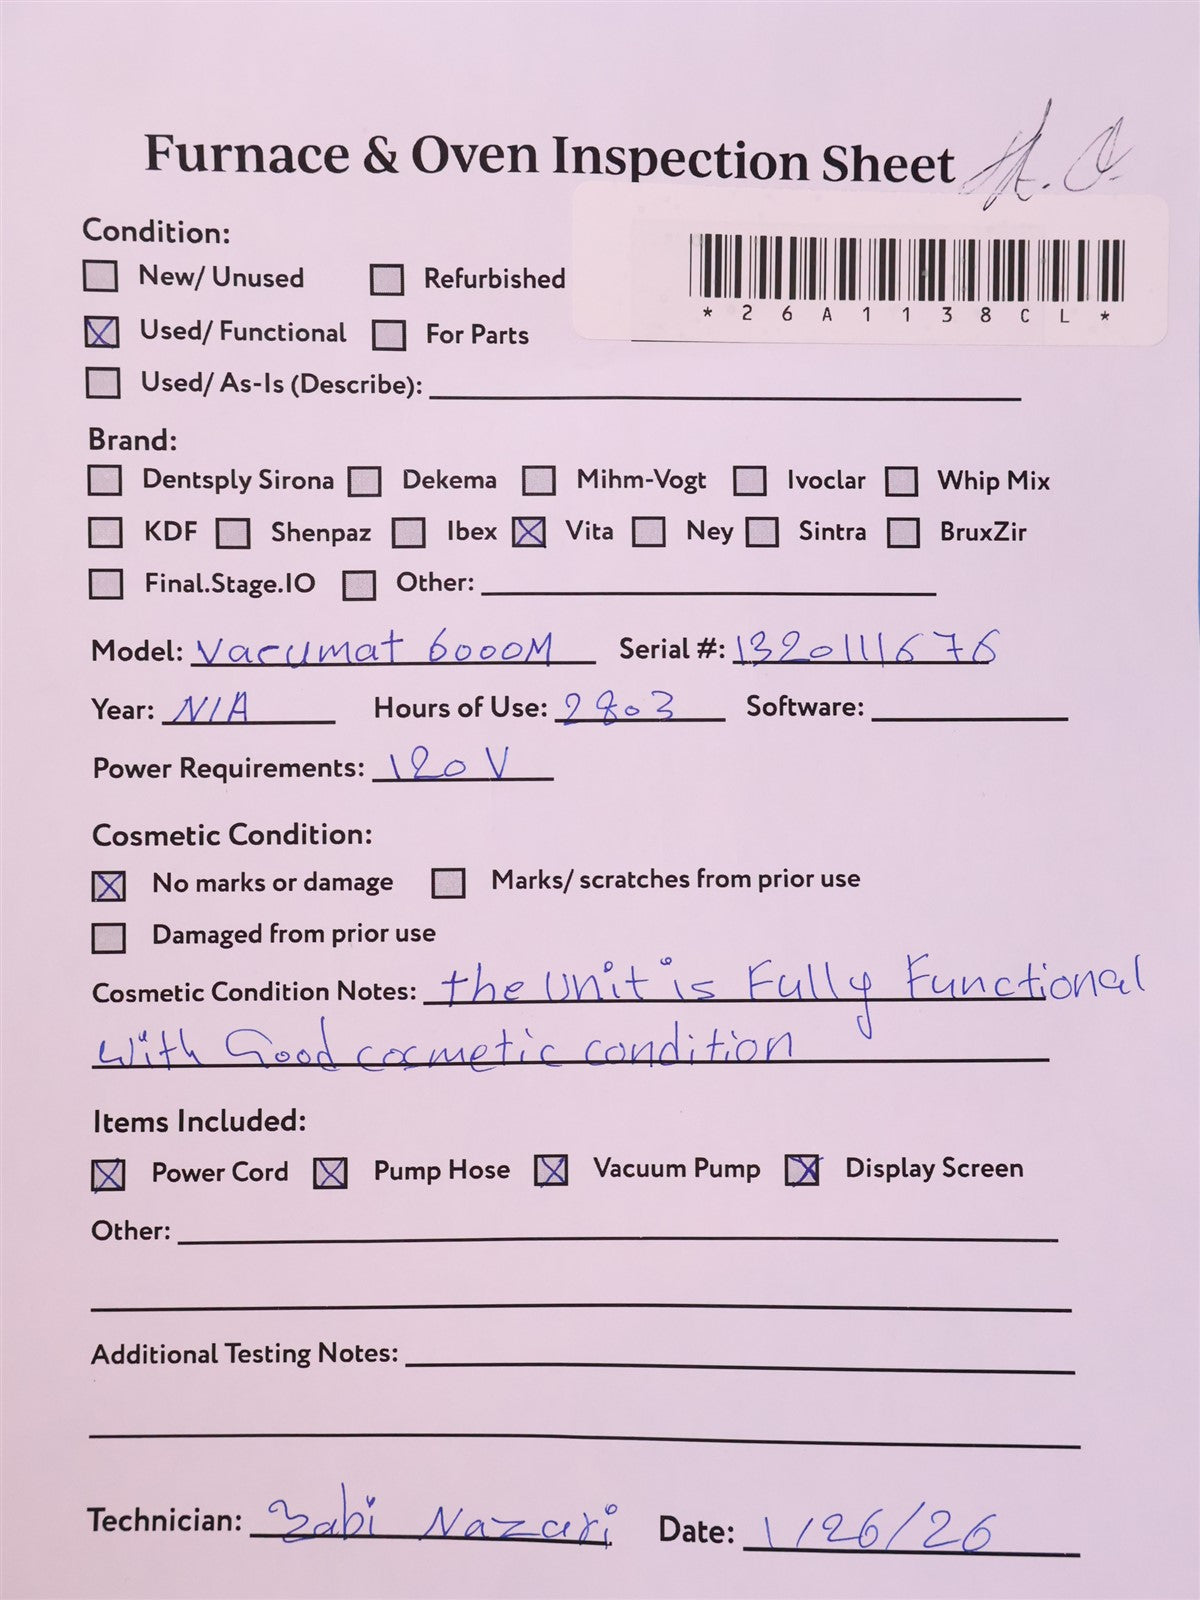 Furnace & Oven Inspection Sheet
Condition:
New/ Unused Refurbished
* 2 6 A 1 1 3 8 C L *
Used/ Functional For Parts
Used/ As-Is (Describe):
Brand:
Dentsply Sirona Dekema Mihm-Vogt Ivoclar Whip Mix
KDF Shenpaz Ibex Vita Ney Sintra BruxZir
Final.Stage.IO Other:
Model: Vacumat 6000M Serial #: 1320111676
Year: N/A Hours of Use: 2803 Software:
Power Requirements: 120 V
Cosmetic Condition:
No marks or damage Marks/ scratches from prior use
Damaged from prior use
Cosmetic Condition Notes: the Unit is Fully Functional
with Good cosmetic condition
Items Included:
Power Cord Pump Hose Vacuum Pump Display Screen
Other:
Additional Testing Notes:
Technician: Zabi Nazari Date: 1/26/26